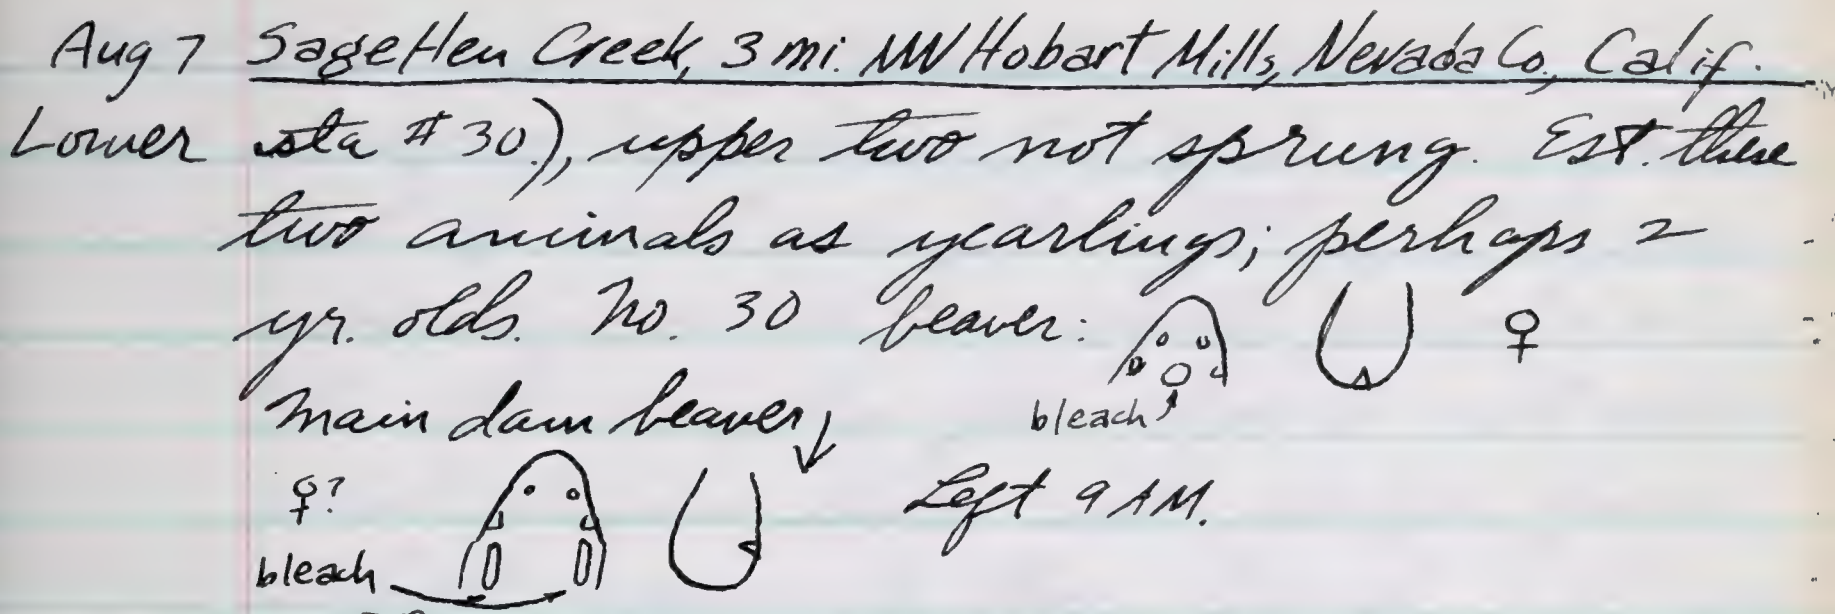 Aug 7 SageHen Creek, 3 mi. NW Hobart Mills, Nevada Co., Calif.
Lower sta # 30.), upper two not sprung. Est. these
two animals as yearlings; perhaps 2
yr. olds. No. 30 beaver: ♀
bleach
Main dam beaver
♀? Left 9 AM.
bleach